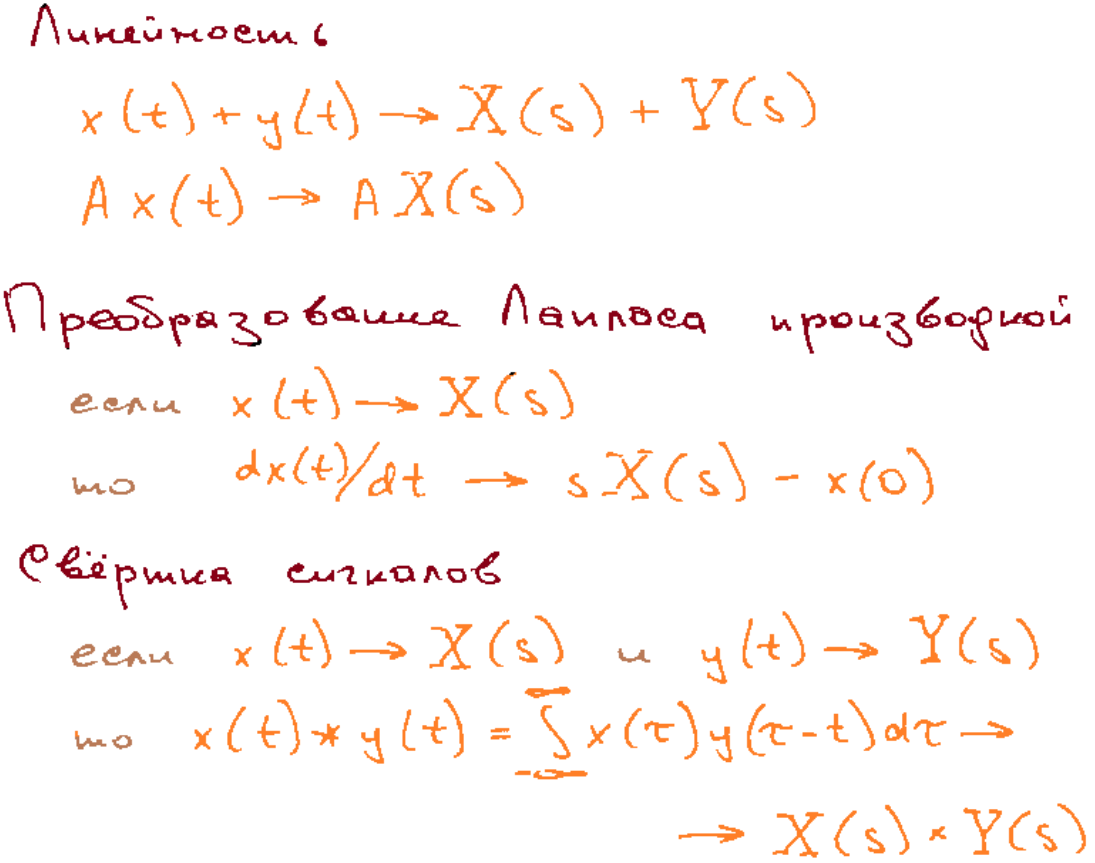 Линейность
x(t) + y(t) → X(s) + Y(s)
A x(t) → A X(s)
Преобразование Лапласа производной
если x(t) → X(s)
то dx(t)/dt → s X(s) - x(0)
Свёртка сигналов
если x(t) → X(s) и y(t) → Y(s)
то x(t) * y(t) = ∫_{-∞}^{∞} x(τ) y(τ-t) dτ →
→ X(s) × Y(s)